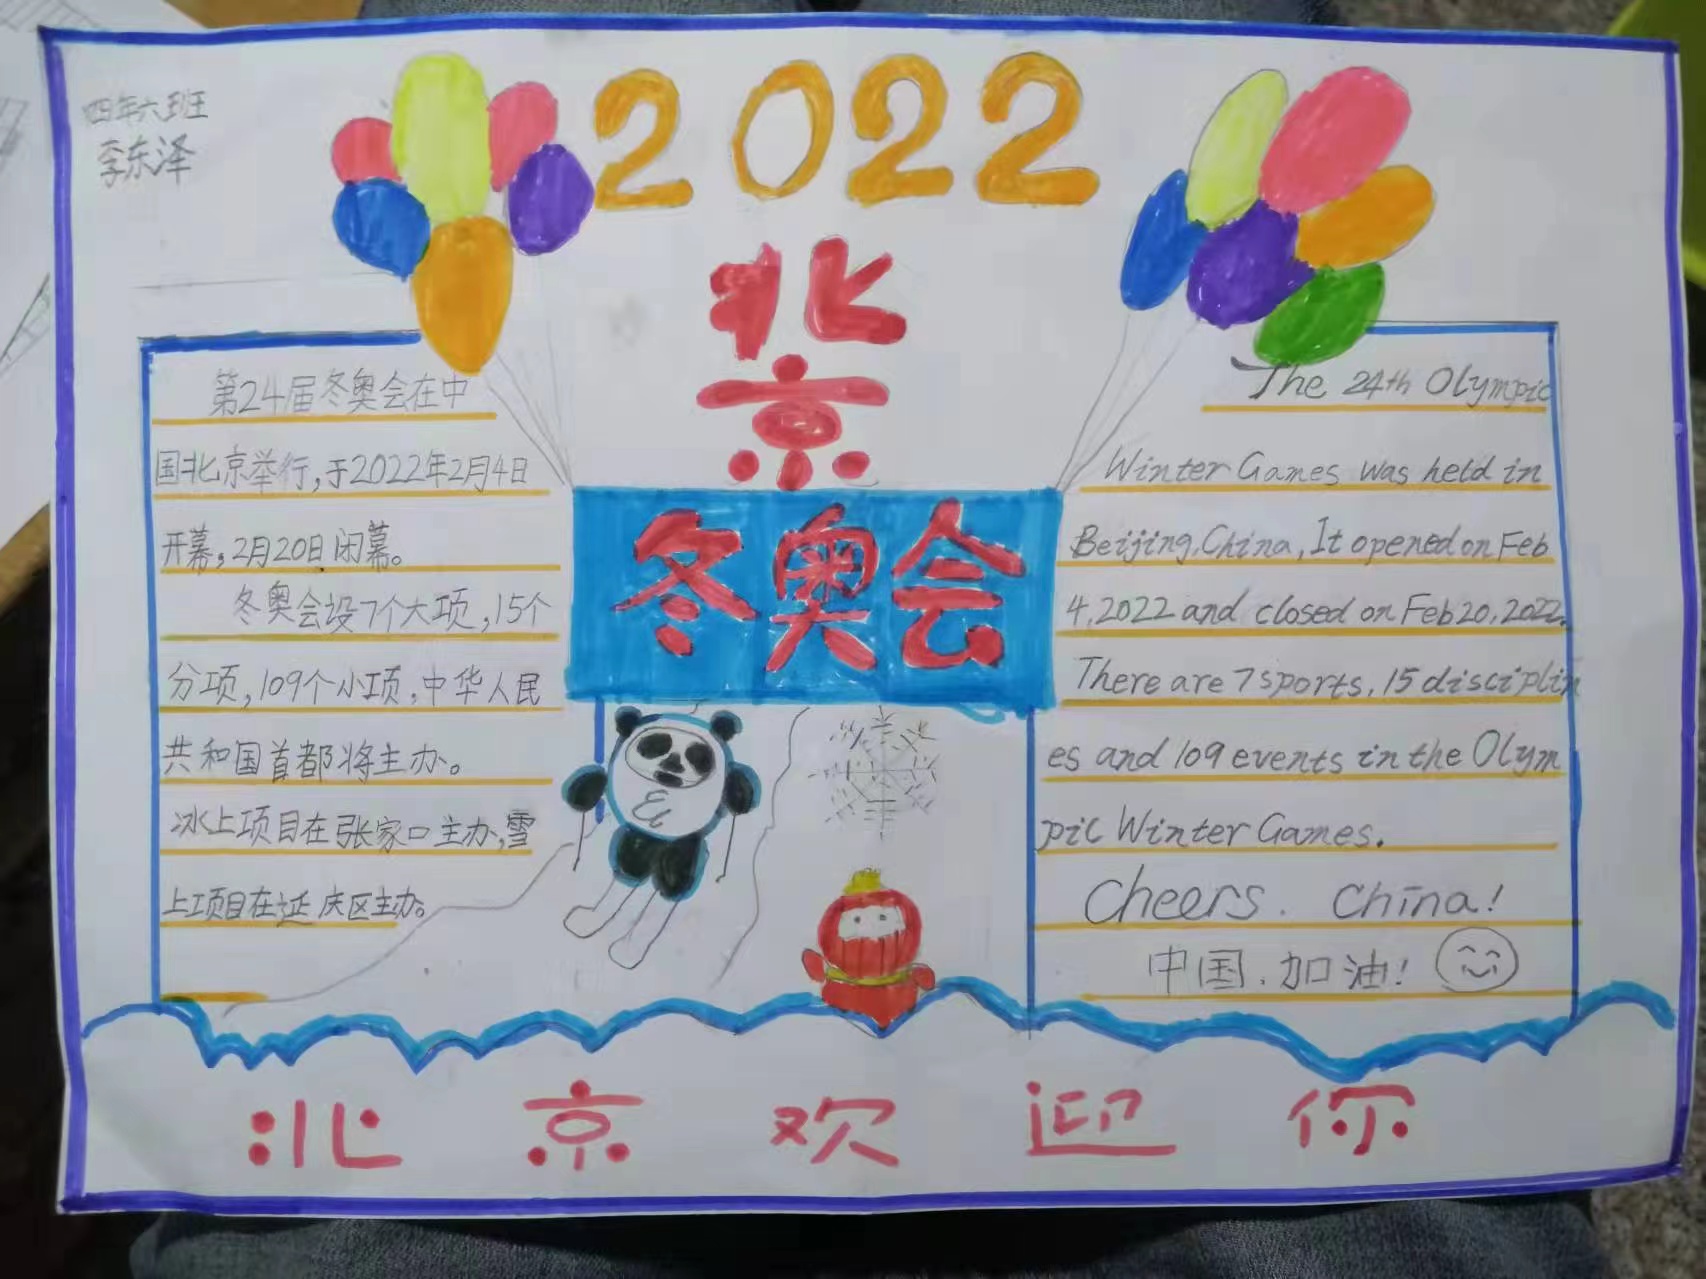 四年六班
李东泽
2022
北
京
冬奥会
第24届冬奥会在中
国北京举行,于2022年2月4日
开幕,2月20日闭幕。
冬奥会设7个大项,15个
分项,109个小项,中华人民
共和国首都将主办。
冰上项目在张家口主办,雪
上项目在延庆区主办。
The 24th Olympic
Winter Games was held in
Beijing,China,It opened on Feb
4,2022 and closed on Feb 20,2022.
There are 7 sports,15 disciplin
es and 109 events in the Olym
pic Winter Games.
Cheers. China!
中国.加油!
北京欢迎你